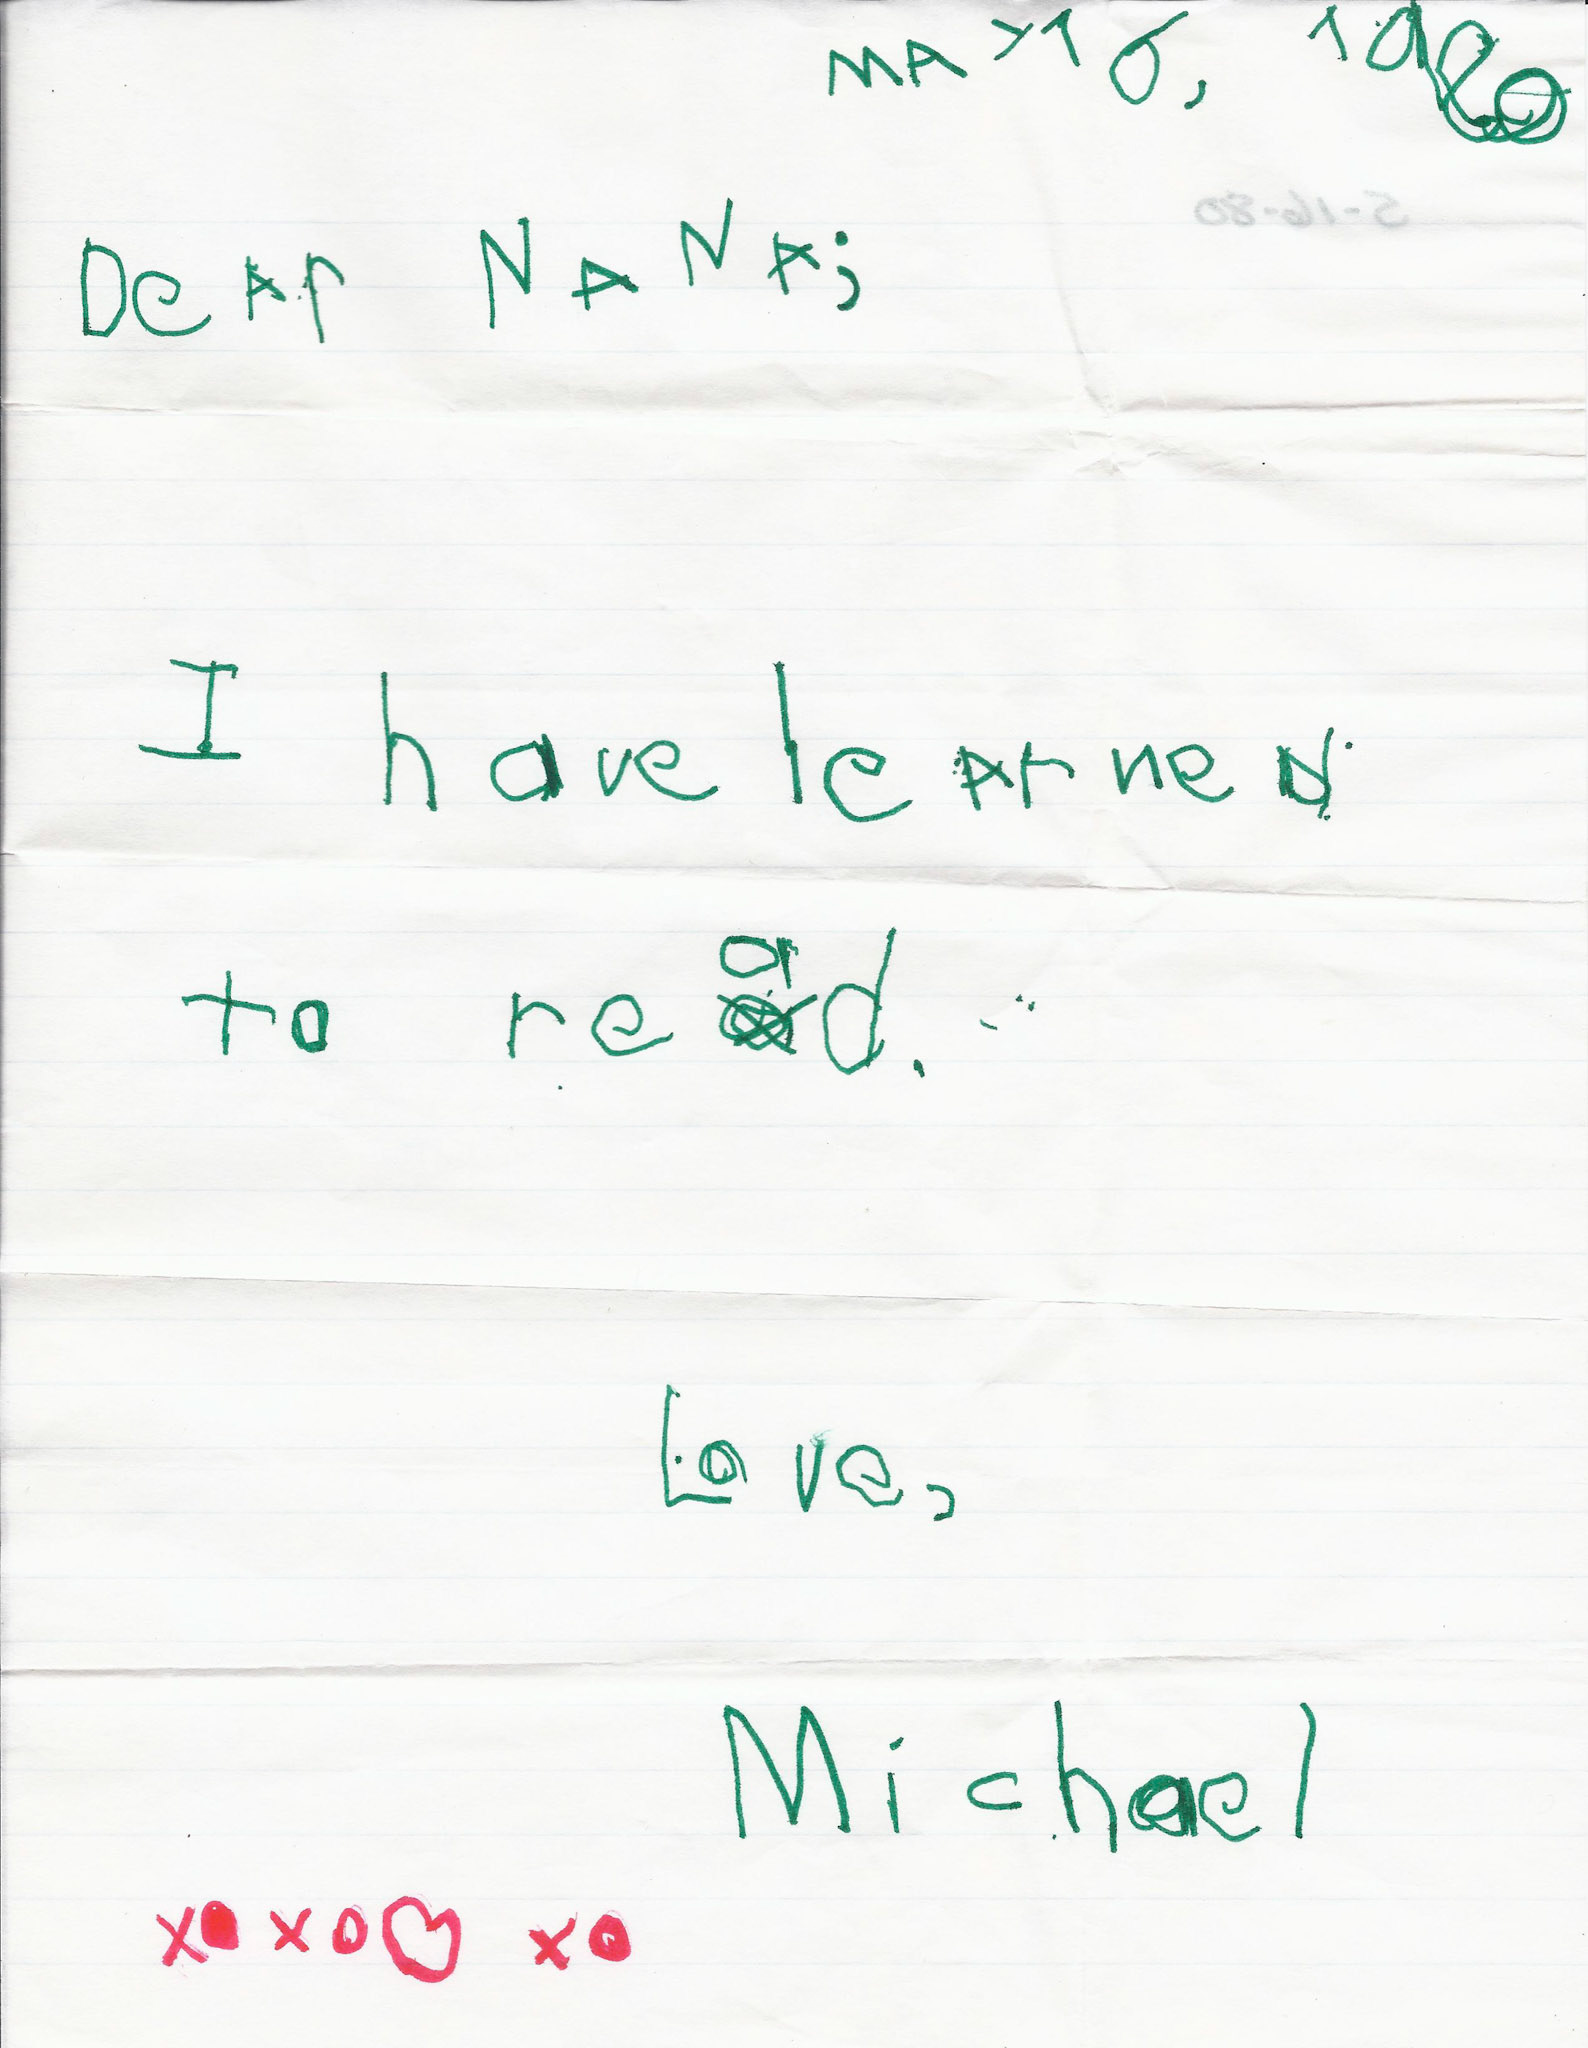 MAY 16, 1980
5-16-80
Dear NANA;
I have learned
to read.
Love,
Michael
xoxo♡ xo